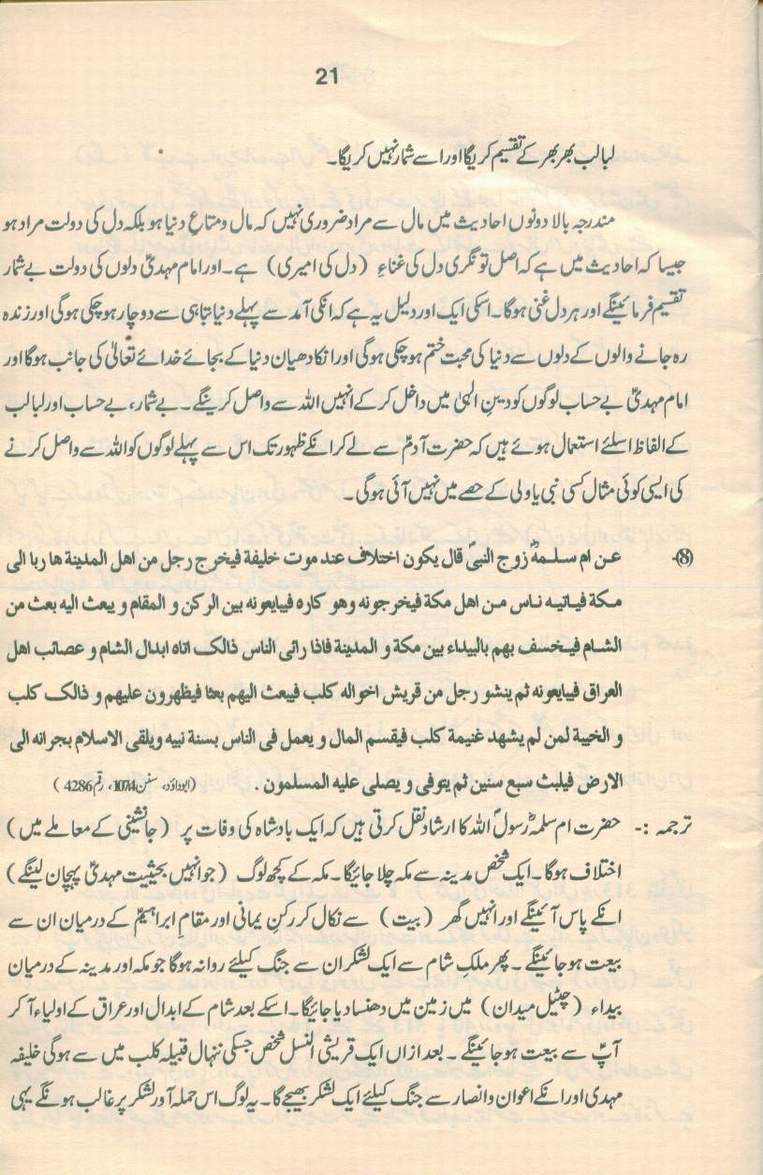 21
لبالب بھر بھر کے تقسیم کریگا اور اسے شمار نہیں کریگا۔
مندرجہ بالا دونوں احادیث میں مال سے مراد ضروری نہیں کہ مال و متاعِ دنیا ہو بلکہ دل کی دولت مراد ہو
جیسا کہ احادیث میں ہے کہ اصل تونگری دل کی غناءِ (دل کی امیری) ہے۔ اور امام مہدیؑ دلوں کی دولت بے شمار
تقسیم فرمائینگے اور ہر دل غنی ہوگا۔ اسکی ایک اور دلیل یہ ہے کہ انکی آمد سے پہلے دنیا تباہی سے دوچار ہو چکی ہوگی اور زندہ
رہ جانے والوں کے دلوں سے دنیا کی محبت ختم ہو چکی ہوگی اور انکا دھیان دنیا کے بجائے خدائے تعالیٰ کی جانب ہوگا اور
امام مہدیؑ بے حساب لوگوں کو دینِ الہیٰ میں داخل کر کے انہیں اللہ سے واصل کرینگے۔ بے شمار، بے حساب اور لبالب
کے الفاظ اسلئے استعمال ہوئے ہیں کہ حضرت آدمؑ سے لے کر انکے ظہور تک اس سے پہلے لوگوں کو اللہ سے واصل کرنے
کی ایسی کوئی مثال کسی نبی یا ولی کے حصے میں نہیں آئی ہوگی۔
(8)- عن ام سلمہؓ زوج النبیؐ قال یکون اختلاف عند موت خلیفة فیخرج رجل من اهل المدینة ها ربا الی
مکة فیاتیه ناس من اهل مکة فیخرجونه وهو کاره فیبایعونه بین الرکن و المقام و یبعث الیه بعث من
الشام فیخسف بهم بالبیداء بین مکة و المدینة فاذا رائی الناس ذالک اتاه ابدال الشام و عصائب اهل
العراق فیبایعونه ثم ینشو رجل من قریش اخواله کلب فیبعث الیهم بعثا فیظهرون علیهم و ذالک کلب
و الخیبة لمن لم یشهد غنیمة کلب فیقسم المال و یعمل فی الناس بسنة نبیه ویلقی الاسلام بجرانه الی
الارض فیلبث سبع سنین ثم یتوفی و یصلی علیه المسلمون . (ابوداؤد، سنن 107:4، رقم 4286)
ترجمہ :- حضرت ام سلمہؓ رسولؐ اللہ کا ارشاد نقل کرتی ہیں کہ ایک بادشاہ کی وفات پر (جانشینی کے معاملے میں)
اختلاف ہوگا۔ ایک شخص مدینہ سے مکہ چلا جائیگا۔ مکہ کے کچھ لوگ (جو انہیں بحیثیت مہدیؑ پہچان لینگے)
انکے پاس آئینگے اور انہیں گھر (بیت) سے نکال کر رکنِ یمانی اور مقامِ ابراہیمؑ کے درمیان ان سے
بیعت ہو جائینگے۔ پھر ملکِ شام سے ایک لشکر ان سے جنگ کیلئے روانہ ہوگا جو مکہ اور مدینہ کے درمیان
بیداء (چٹیل میدان) میں زمین میں دھنسا دیا جائیگا۔ اسکے بعد شام کے ابدال اور عراق کے اولیاء آ کر
آپؑ سے بیعت ہو جائینگے۔ بعد ازاں ایک قریشی النسل شخص جسکی ننہال قبیلہ کلب میں سے ہوگی خلیفہ
مہدی اور انکے اعوان و انصار سے جنگ کیلئے ایک لشکر بھیجے گا۔ یہ لوگ اس حملہ آور لشکر پر غالب ہونگے یہی